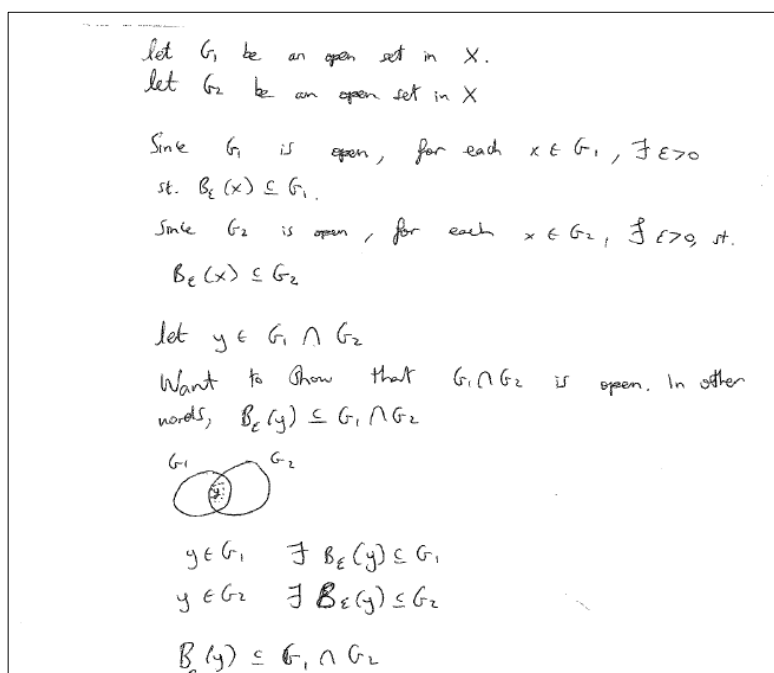 let G₁ be an open set in X.
let G₂ be an open set in X
Since G₁ is open, for each x ∈ G₁, ∃ ε>0
st. B_ε(x) ⊆ G₁.
Since G₂ is open, for each x ∈ G₂, ∃ ε>0, st.
B_ε(x) ⊆ G₂
let y ∈ G₁ ∩ G₂
Want to show that G₁∩G₂ is open. In other
words, B_ε(y) ⊆ G₁∩G₂
G₁ G₂
y
y ∈ G₁ ∃ B_ε(y) ⊆ G₁
y ∈ G₂ ∃ B_ε(y) ⊆ G₂
B (y) ⊆ G₁ ∩ G₂